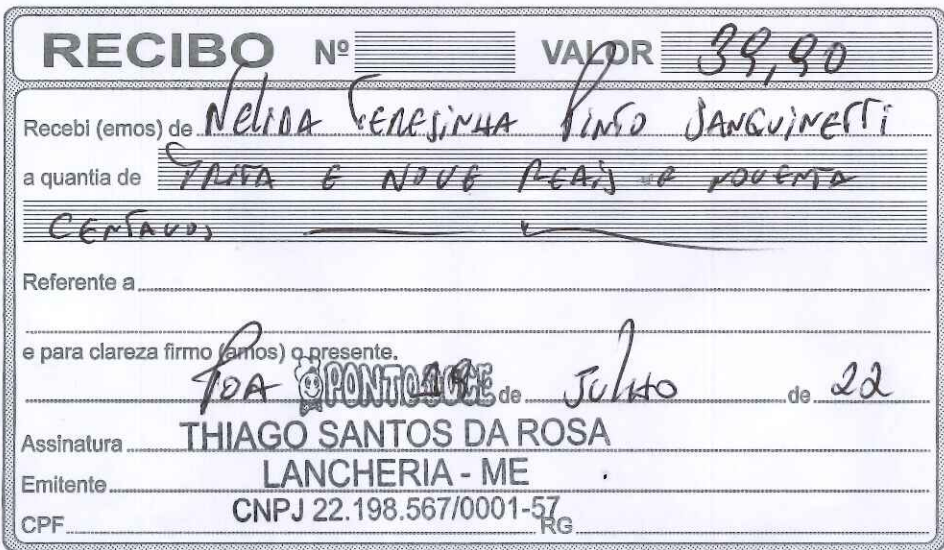 RECIBO Nº VALOR 39,90
Recebi (emos) de Nelida Teresinha Pinto Sanguinetti
a quantia de TRITA E NOVE REAIS E NOVENTA
CENTAVOS
Referente a
e para clareza firmo (amos) o presente.
POA PONTO DOCE de Julho de 22
Assinatura THIAGO SANTOS DA ROSA
Emitente LANCHERIA - ME
CPF CNPJ 22.198.567/0001-57 RG